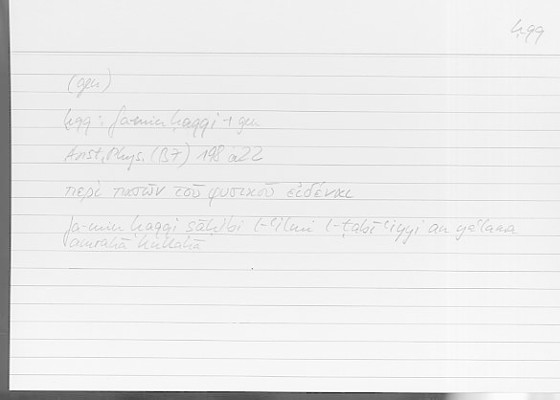 ḥqq
(gen)
ḥqq : fa-min ḥaqqi + gen
Arist. Phys. (B7) 198 a22
περὶ πασῶν τοῦ φυσικοῦ εἰδέναι
fa-min ḥaqqi ṣāḥibi l-ʿilmi l-ṭabīʿiyyi an yaʿlama
kullahā